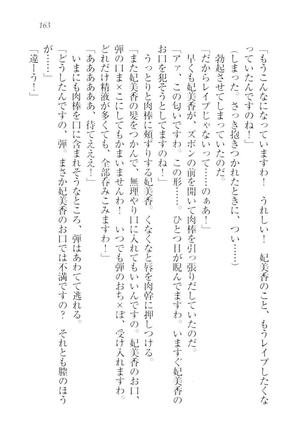 163
「もうこんなになっていますわ！　うれしい！　妃美香のこと、もうレイプしたくな
っていたんですのね！」
（しまった、さっき抱きつかれたときに、つい……）
　勃起してしまっていたのだ。
「だからレイプじゃないって……のぁあ！」
　早くも妃美香が、ズボンの前を開いて肉棒を引っ張りだしていたのだ。
「アァ、この匂いですわ、この形……。ひとつ目が睨んでますわ。いますぐ妃美香の
お口を犯そうとしてますのね！」
　うっとりと肉棒に頬ずりする妃美香　くなくなと唇を肉幹に押しつける。
「また妃美香の髪をつかんで、無理やり口に入れてもいいんですのよ。妃美香のお口、
弾の口ま×こにしてもかまいませんわ！　いつでも弾のおち×ぽ、受け入れますわ。
どれだけ精液が多くても、全部呑みこみますわ！」
「あああああ、待てえええ！」
　いまにも肉棒を口に含まれそうなところ、弾はあわてて逃れる。
「どうしたんですの、弾。まさか妃美香のお口では不満ですの？　それとも膣のほう
「違ーう！」